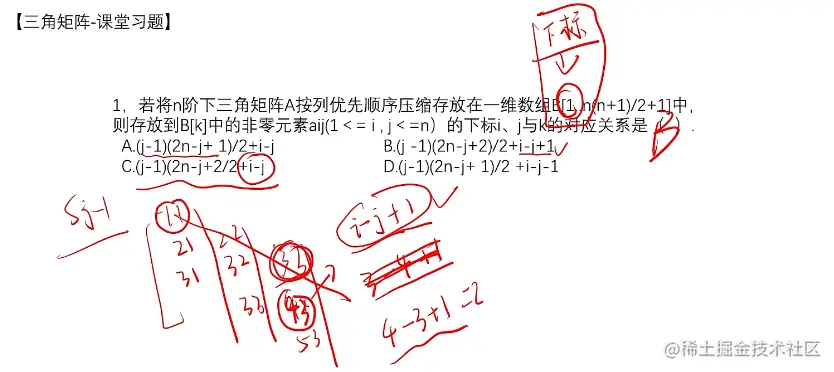 【三角矩阵-课堂习题】
下标
1
1，若将n阶下三角矩阵A按列优先顺序压缩存放在一维数组B[1,n(n+1)/2+1]中，
则存放到B[k]中的非零元素aij(1<= i , j <=n）的下标i、j与k的对应关系是（B）.
A.(j-1)(2n-j+ 1)/2+i-j B.(j -1)(2n-j+2)/2+i-j+1
C.(j-1)(2n-j+2/2+i-j D.(j-1)(2n-j+ 1)/2 +i-j-1
Sj-1
11 i-j+1
21 22 33
31 32 3 4+1
33 43 4-3+1=2
53
@稀土掘金技术社区